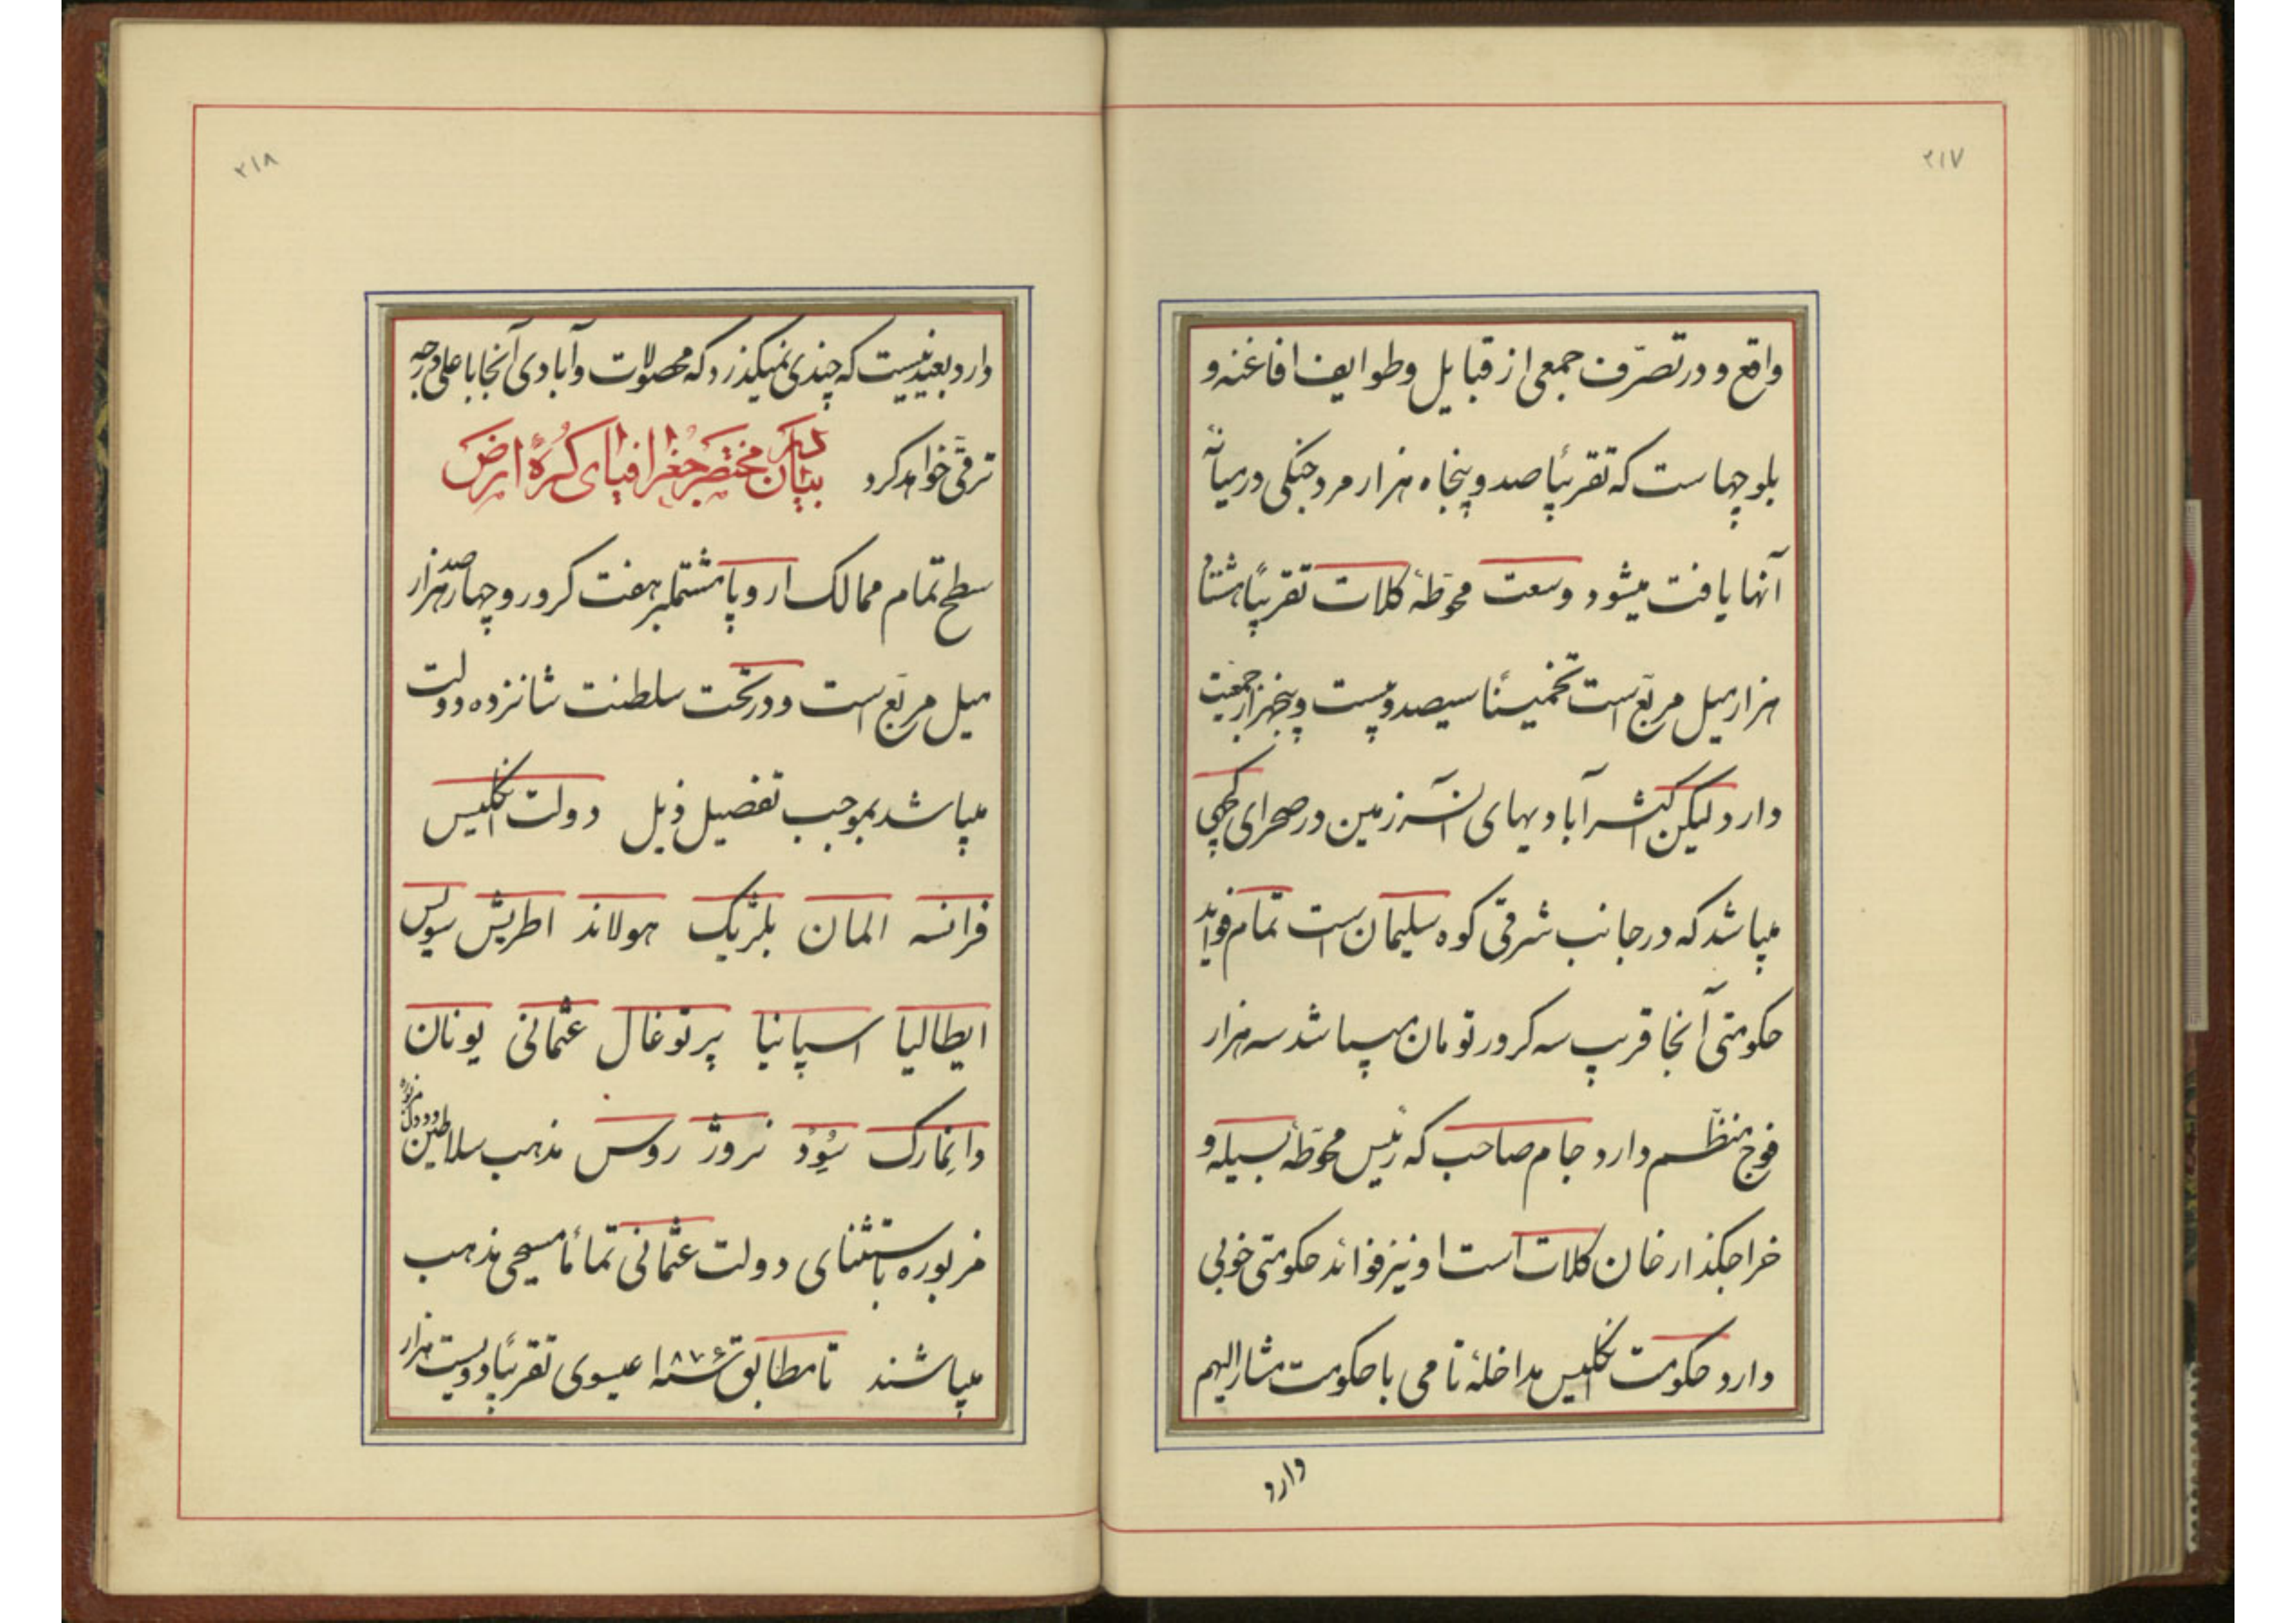 ۲۱۷
واقع و در تصرّف جمعی از قبایل و طوایف افاغنه و
بلوچهاست که تقریباً صد و پنجاه هزار مرد جنکی در میانهٔ
آنها یافت میشود وسعت محوّطهٔ کلات تقریباً هشتاد
هزار میل مربّع است تخمیناً سیصد و بیست و پنجهزار جمعیت
دارد لیکن اکثر آبادیهای آن سرزمین در صحرای کچهی
میباشد که در جانب شرقی کوه سلیمان است تمام فواید
حکومتی آنجا قریب سه کرور تومان میباشد سه هزار
فوج منظّم دارد جام صاحب که رئیس محوّطهٔ بسیله و
خراجکذار خان کلات است او نیز فوائد حکومتی خوبی
دارد حکومت انکلیس مداخلهٔ تامی با حکومت مشارالیهم
دارد
۲۱۸
دارد بعید نیست که چندی نمیکذرد که محصولات و آبادی آنجا با علی درجه
ترقّی خواهد کرد در بیان مختصر جغرافیای کُرهٔ ارض
سطح تمام ممالک اروپا مشتملبر هفت کرور و چهارصد هزار
میل مربّع است و در تحت سلطنت شانزده دولت
میباشد بموجب تفضیل ذیل دولت انکلیس
فرانسه المان بلژیک هولاند اطریش سویس
ایطالیا اسپانیا پرتوغال عثمانی یونان
دانِمارک سُوِدْ نروژ روس مذهب سلاطین و دول
مزبوره باستثنای دولت عثمانی تماماً مسیحی مذهب
میباشند تا مطابق سنه ۱۸۷۶ عیسوی تقریباً دویست هزار